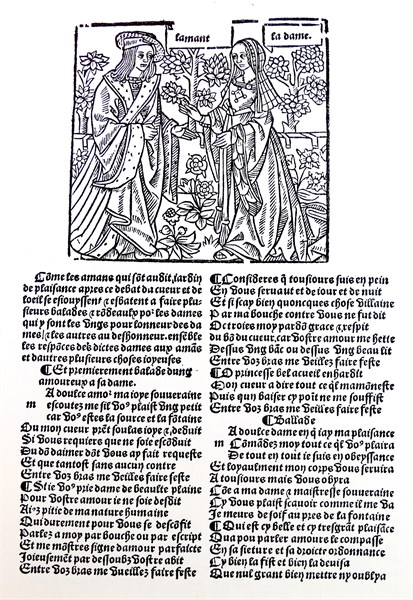 lamant
la dame.
Cõme les amans qui sõt audit iardin
de plaisance apres ce debat du cueur et de
loeil se esiouyssent & esbatent a faire plu-
sieurs balades & rõdeaulx po᷒ les dames
qui y sont les vngs pour lonneur des da
mes/les autres au deshonneur. ensẽble
les respõces desdictes dames aux amãs
et dautres plusieurs choses ioyeuses
¶Et premierement balade dung
amoureux a sa dame.
A doulce amo᷒ ma ioye souueraine
m escoutez me sil vo᷒ plaist vng petit
car vo᷒ estes la source et la fõtaine
Du mon cueur prẽt soulas ioye & deduit
Si vous requiers que ne soie escõduit
Du dõ daimer dõt vous ay fait requeste
Et que tantost sans aucun contre
Entre voz bras me veilles faire feste
¶Si ie vo᷒ prie dame de beaulte plaine
Pour vostre amour ie ne soie desdit
Aiez pitie de ma nature humaine
Qui durement pour vous se descõfit
Parlez a moy par bouche ou par escript
Et me mõstres signe damour parfaicte
Joieusement par dessoubz vostre abit
Entre voz bras me vueillez faire feste
¶Consideres q̃ tousiours suis en pein
En vous seruant et de iour et de nuit
Et si scay bien quoncques chose villaine
Par ma bouche contre vous ne fut dit
Octroies moy par dõ grace & respit
du bõ du cueur, car vostre amour me hette
Dessus vng bãc ou dessus vng beau lit
Entre voz bras me veilles faire feste
¶O princesse bel acueil enhardit
Mon cueur a dire tout ce q̃l mamõneste
Puis quun baiser cy poĩt ne me souffist
Entre voz bras me veilles faire feste
¶Ballade
A doulce dame en q̃ iay ma plaisance
m Cõmãdez moy tout ce q̃l vo᷒ plaira
De tout en tout ie suis en obeyssance
Et loyaulment mon corps vous seruira
A tousiours mais vous obyra
Cõe a ma dame & maistresse souueraine
Cy vous plaist scauoir comme il me va
Je meurs de soif au pres de la fontaine
¶Qui est cy belle et cy tresgrãt plaisãce
Qua pou parler amours le compasse
En sa facture et sa droicte ordonnance
Cy bien la fist et bien la deuisa
Que nul grant bien mettre ny oublya